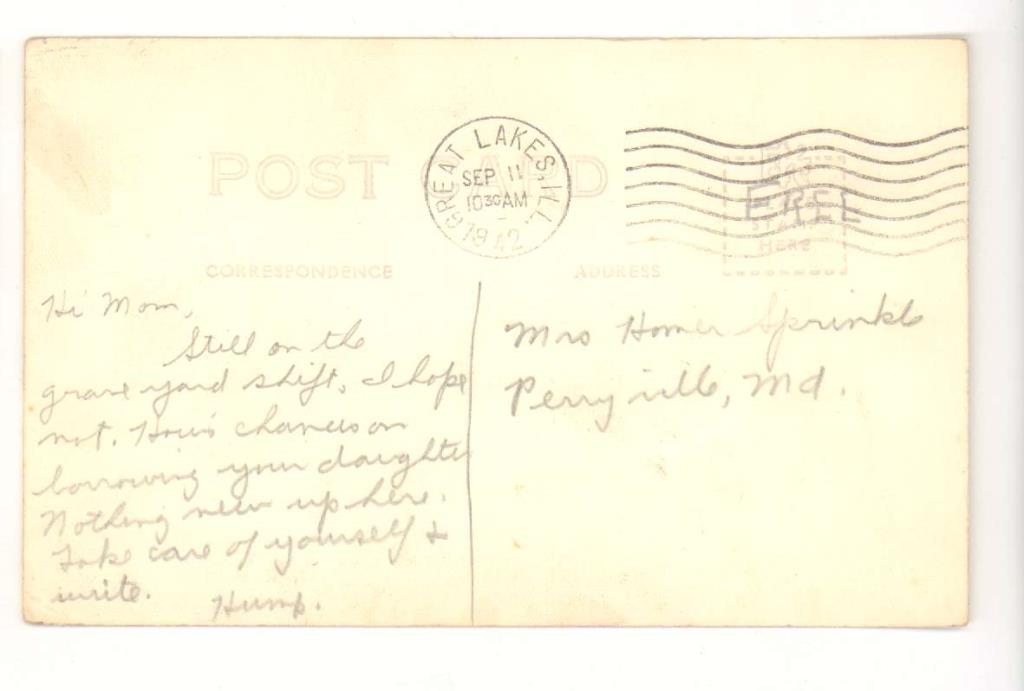 POST CARD
GREAT LAKES, ILL.
SEP 11
1030AM
1942
FREE
STAMP
HERE
CORRESPONDENCE
ADDRESS
Hi Mom,
Still on the
grave yard shift. I hope
not. How's chances on
borrowing your daughter
Nothing new up here.
Take care of yourself &
write.
Hump.
Mrs Homer Sprinkle
Perryville, Md.